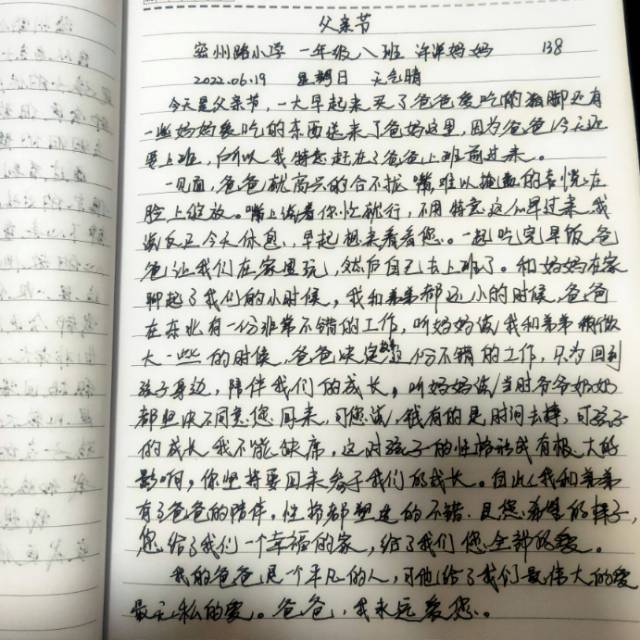 父亲节
密州路小学 一年级八班 许洪妈妈 138
2022.06.19 星期日 天气晴
今天是父亲节，一大早起来买了爸爸爱吃的猪脚还有
一些妈妈爱吃的东西送来了爸妈这里，因为爸爸今天还
要上班，所以我特意赶在了爸爸上班前过来。
一见面，爸爸就高兴的合不拢嘴难以掩盖的喜悦在
脸上绽放。嘴上说着你忙就行，不用特意这个早过来我
说反正今天休息，早起想来看看您。一起吃完早饭，爸
爸让我们在家里玩，然后自己去上班了。和妈妈在家
聊起了我们的小时候，我和弟弟都还小的时候，爸爸
在东北有一份非常不错的工作，听妈妈说我和弟弟稍微
大一些的时候，爸爸决定辞这份不错的工作，只为回到
孩子身边，陪伴我们的成长，听妈妈说当时爷爷奶奶
都坚决不同意您回来，可您说，我有的是时间去挣，可孩子
的成长我不能缺席，这对孩子的性格形成有极大的
影响，你坚持要回来参于我们的成长。因此我和弟弟
有了爸爸的陪伴，性格都塑造的不错，是您希望的样子，
您给了我们一个幸福的家，给了我们您全部的爱。
我的爸爸是一个平凡的人，可他给了我们最伟大的爱
最无私的爱。爸爸，我永远爱您。